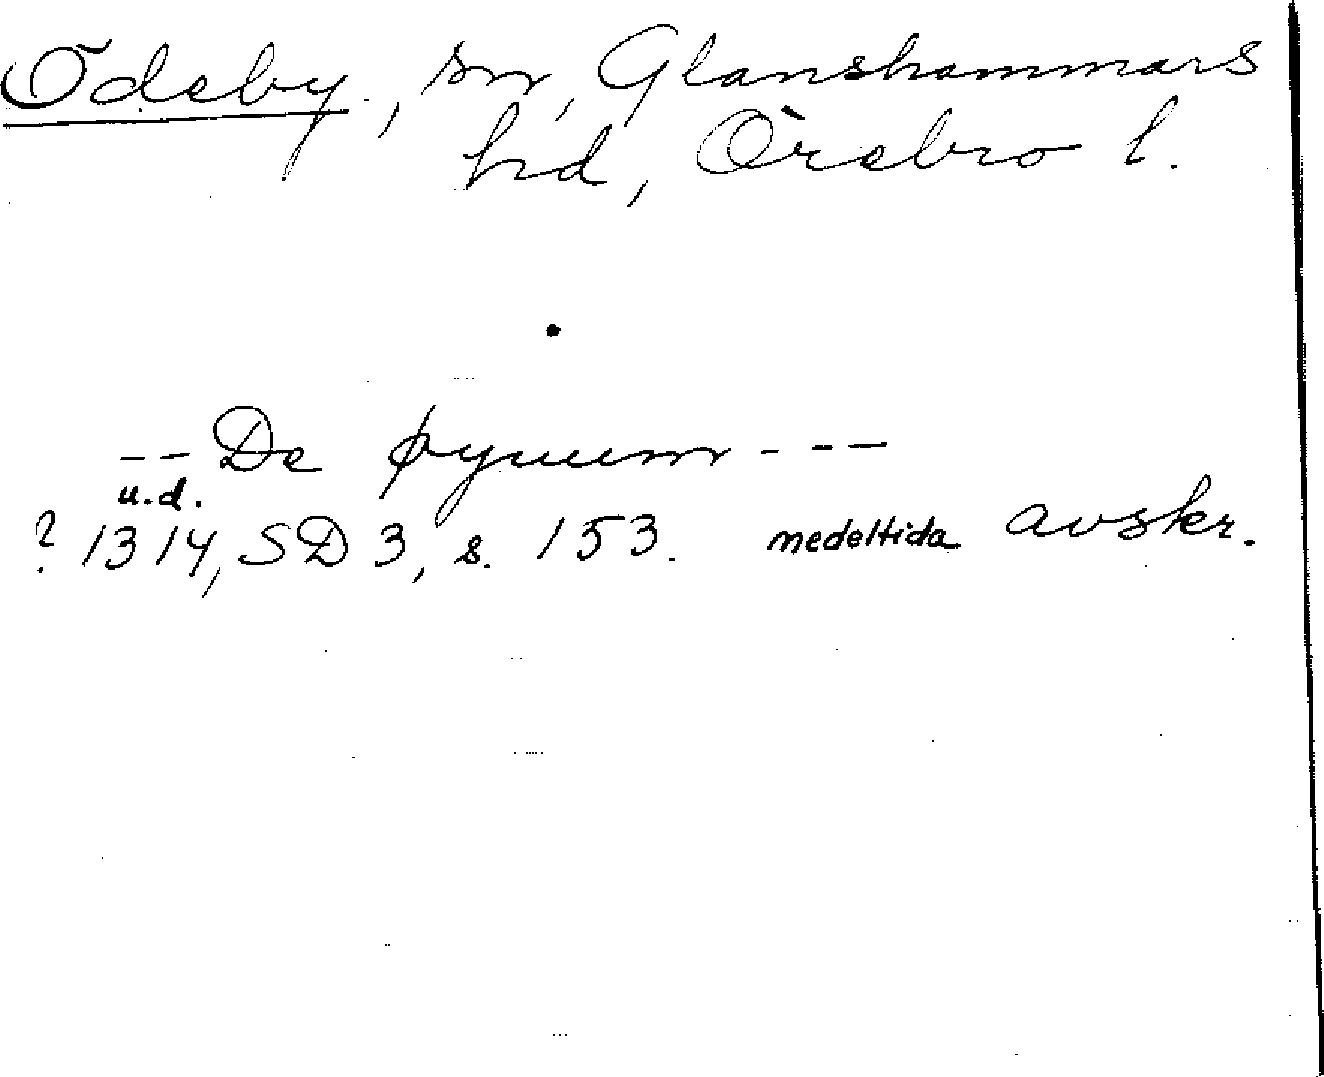 Ödeby, sn, Glanshammars
hd, Örebro l.
-- De øynum ---
u.d.
? 1314, SD 3, s. 153. medeltida avskr.